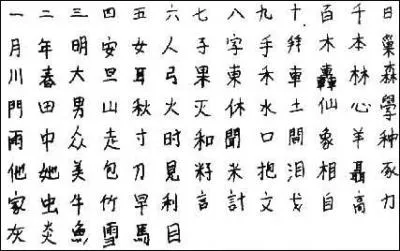 一 二 三 四 五 六 七 八 九 十 百 千 日
一 年 明 安 女 人 子 字 手 拜 木 本 巢
川 春 大 旦 耳 弓 果 東 禾 車 轟 林 森
門 田 男 山 秋 火 灭 休 水 土 仙 心 學
雨 中 众 走 寸 时 和 聞 口 間 象 羊 种
他 她 美 包 刀 見 籽 米 抱 泪 相 聶 豕
家 虫 牛 竹 早 利 言 計 文 戈 自 高 力
灰 炎 魚 雪 馬 目